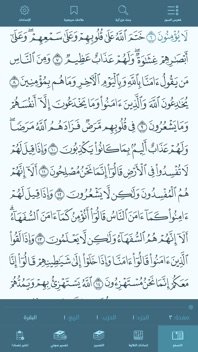 فهرس السور
بحث في آية
علامات مرجعية
الإعدادات
لَا يُؤْمِنُونَ ٦ خَتَمَ اللَّهُ عَلَىٰ قُلُوبِهِمْ وَعَلَىٰ سَمْعِهِمْ وَعَلَىٰ
أَبْصَارِهِمْ غِشَاوَةٌ وَلَهُمْ عَذَابٌ عَظِيمٌ ٧ وَمِنَ النَّاسِ
مَن يَقُولُ آمَنَّا بِاللَّهِ وَبِالْيَوْمِ الْآخِرِ وَمَا هُم بِمُؤْمِنِينَ ٨
يُخَادِعُونَ اللَّهَ وَالَّذِينَ آمَنُوا وَمَا يَخْدَعُونَ إِلَّا أَنفُسَهُمْ
وَمَا يَشْعُرُونَ ٩ فِي قُلُوبِهِم مَّرَضٌ فَزَادَهُمُ اللَّهُ مَرَضًا
وَلَهُمْ عَذَابٌ أَلِيمٌ بِمَا كَانُوا يَكْذِبُونَ ١٠ وَإِذَا قِيلَ لَهُمْ
لَا تُفْسِدُوا فِي الْأَرْضِ قَالُوا إِنَّمَا نَحْنُ مُصْلِحُونَ ١١ أَلَا إِنَّهُمْ
هُمُ الْمُفْسِدُونَ وَلَٰكِن لَّا يَشْعُرُونَ ١٢ وَإِذَا قِيلَ لَهُمْ
آمِنُوا كَمَا آمَنَ النَّاسُ قَالُوا أَنُؤْمِنُ كَمَا آمَنَ السُّفَهَاءُ
أَلَا إِنَّهُمْ هُمُ السُّفَهَاءُ وَلَٰكِن لَّا يَعْلَمُونَ ١٣ وَإِذَا لَقُوا
الَّذِينَ آمَنُوا قَالُوا آمَنَّا وَإِذَا خَلَوْا إِلَىٰ شَيَاطِينِهِمْ قَالُوا إِنَّا
مَعَكُمْ إِنَّمَا نَحْنُ مُسْتَهْزِئُونَ ١٤ اللَّهُ يَسْتَهْزِئُ بِهِمْ وَيَمُدُّهُمْ
البقرة
التفسير